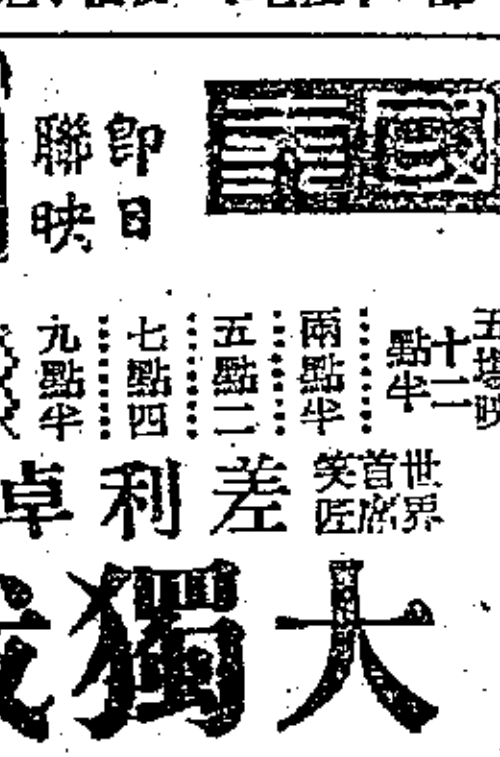 國
即日
聯映
五場映
十二點半
兩點半
五點二
七點四
九點半
世界
首席
笑匠
差利卓
大獨